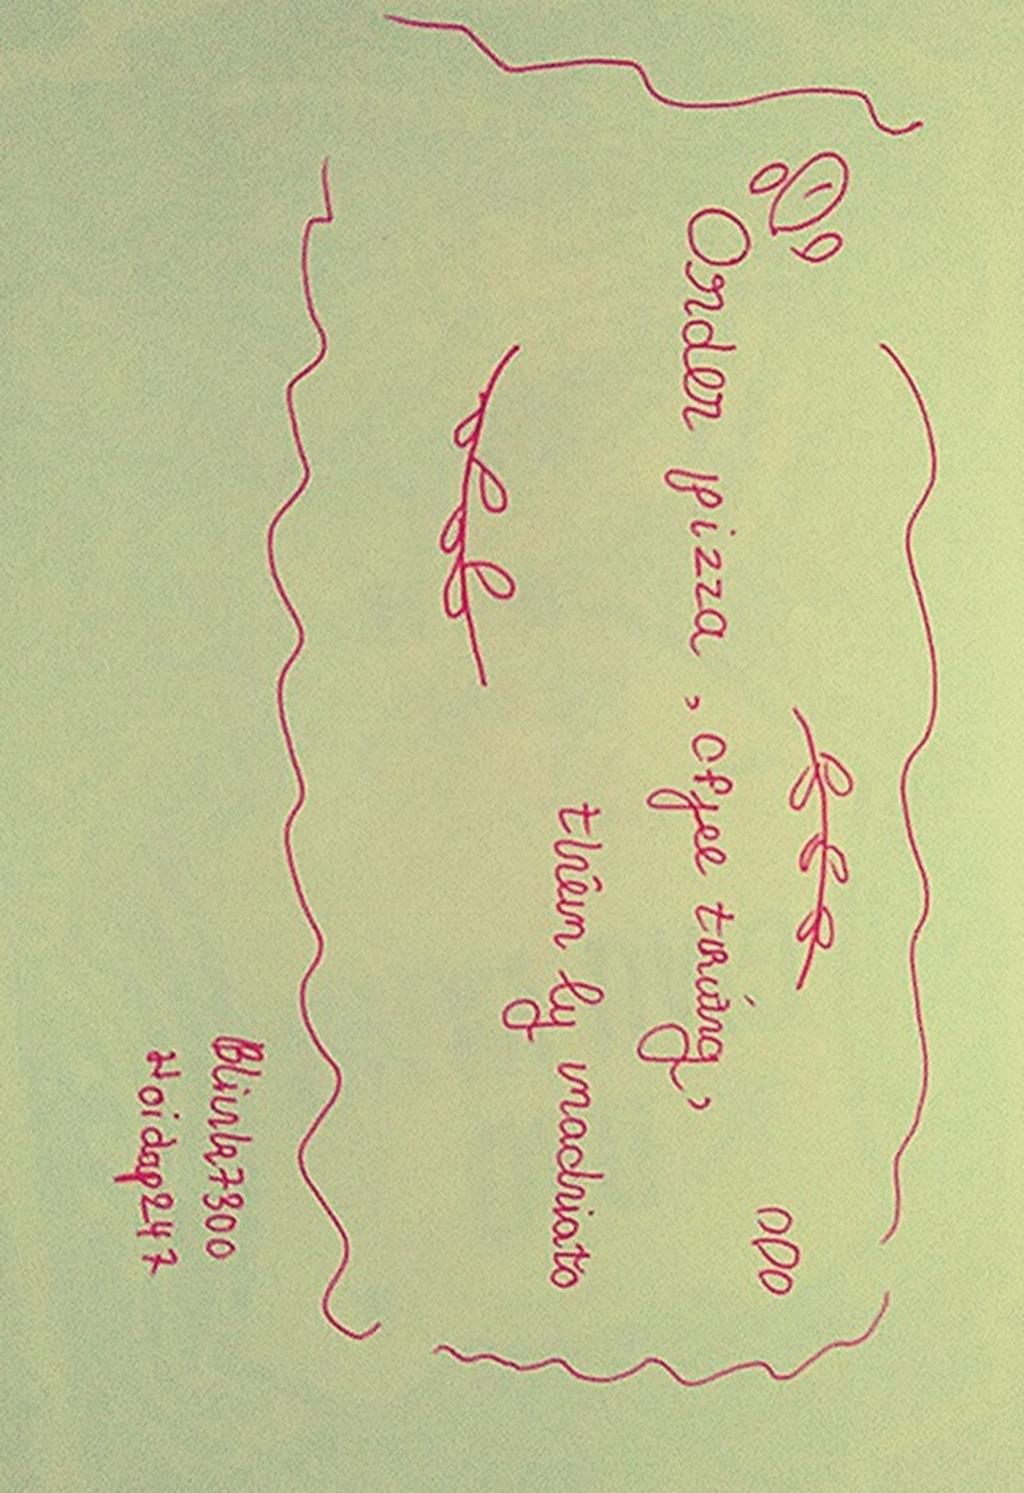 Order pizza, cfjee trứng,
thêm ly machiato
Blinlq7300
Hoidap247